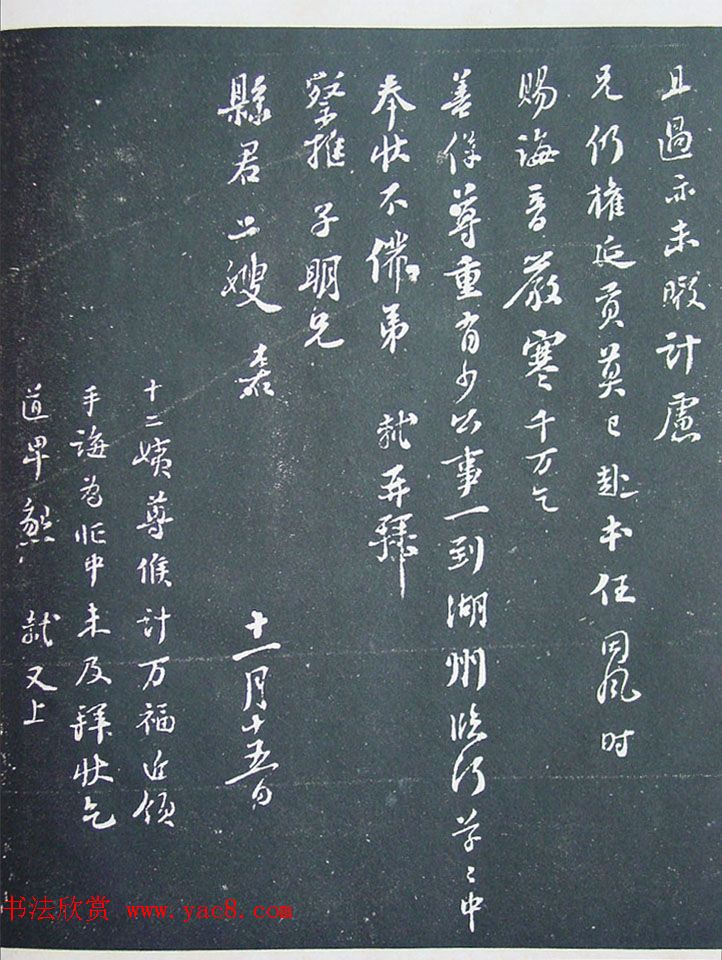 且過亦未暇計慮
兄仍權延貢莫已赴本任因風時
賜誨音嚴寒千万乞
善保尊重有少公事一到湖州臨行草〻中
奉狀不備弟 軾再拜
察推子明兄
縣君二嫂 座
十一月十五日
十二姨尊候計万福近領
手誨為忙中未及拜狀乞
道卑懇 軾又上
书法欣赏 www.yac8.com